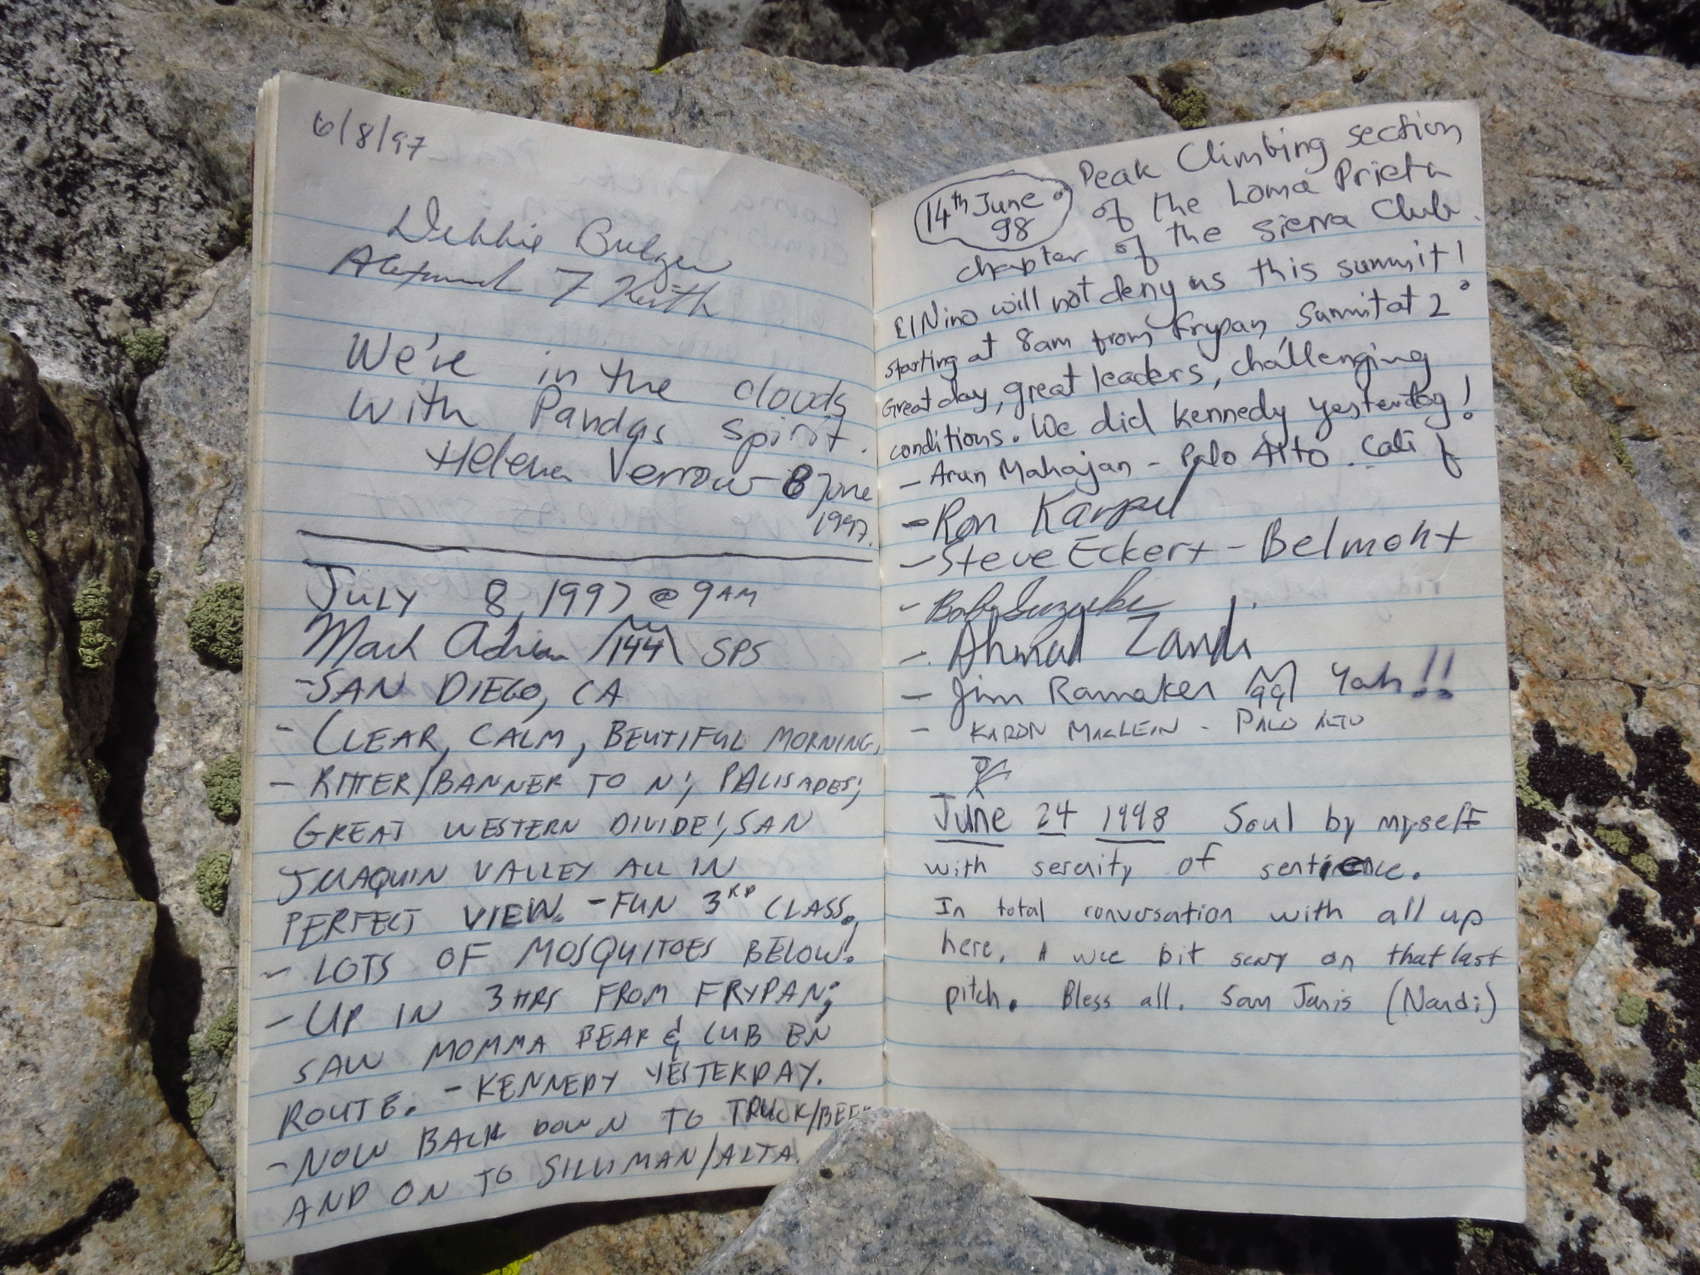 6/8/97
Debbie Bulger
7 Keith
We're in the clouds
with Pandas spirit.
Helena Verrow 8 June
1997.
July 8, 1997 @ 9AM
Mark Adrian 144 SPS
- SAN DIEGO, CA
- CLEAR, CALM, BEUTIFUL MORNING,
- RITTER/BANNER TO N!, PALISADES;
GREAT WESTERN DIVIDE!, SAN
JUAQUIN VALLEY ALL IN
PERFECT VIEW. - FUN 3RD CLASS,
- LOTS OF MOSQUITOES BELOW!
- UP IN 3 HRS FROM FRYPAN;
SAW MOMMA BEAR & CUB EN
ROUTE. - KENNEDY YESTERDAY.
- NOW BACK DOWN TO TRUCK/BEE
AND ON TO SILLIMAN/ALTA.
14th June 98 Peak Climbing section
of the Loma Prieta
chapter of the Sierra Club.
El Nino will not deny us this summit!
starting at 8am from Frypan, Summit at 2°
Great day, great leaders, challenging
conditions. We did kennedy yesterday!
- Arun Mahajan - Palo Alto. Calif
- Ron Karpel
- Steve Eckert - Belmont
- Bob Suzuki
- Ahmad Zandi
- Jim Ramaker 99 Yah!!
- KARON MACLEIN - PALO ALTO
June 24 1998 Soul by myself
with sereity of sentience.
In total conversation with all up
here. A wee bit scary on that last
pitch. Bless all. Sam Janis (Nardi)